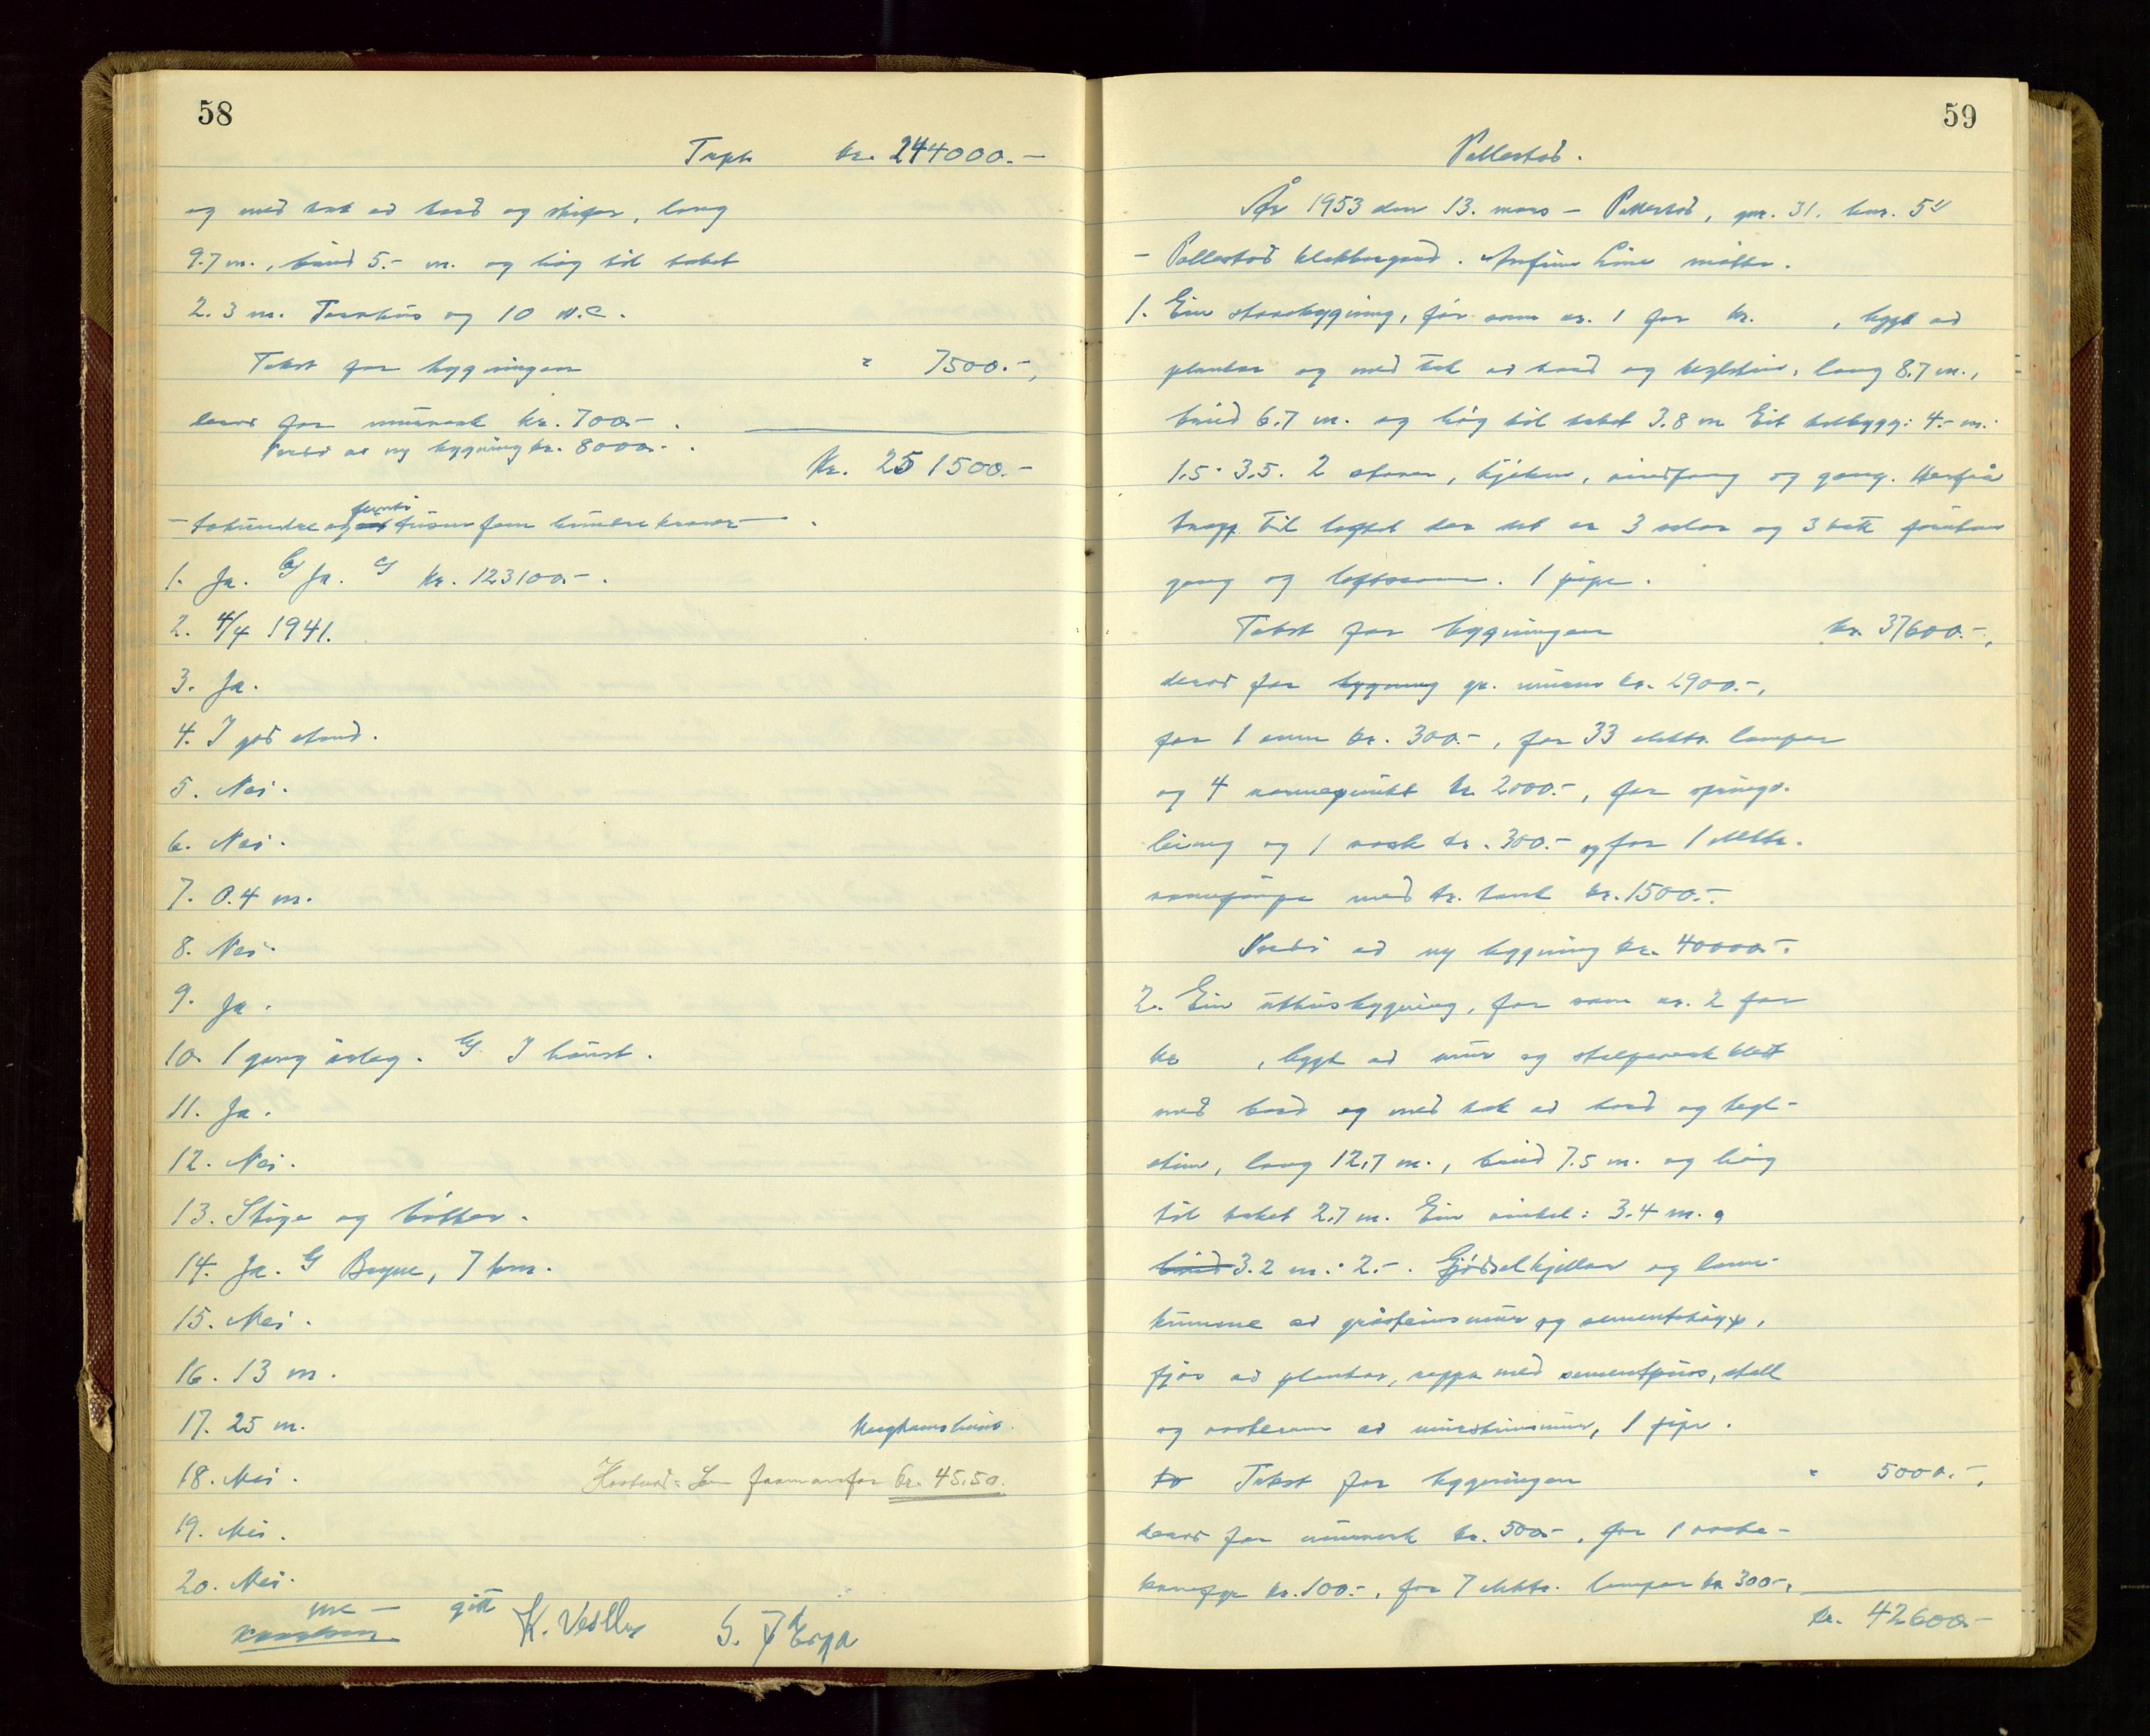 58
kr. 244000.-
og med tak av bord og skifer, lang
9.7 m., breid 5.- m. og høg til taket
2.3 m. Tørrhus og 10 W.C.
Takst for bygningen " 7500.-,
derav for murverk kr. 700.- .
Verdi av ny bygning kr. 8000.- .
Kr. 251500.-
- tohundre og femti en tusen fem hundre kroner - .
1. Ja. Ja. kr. 123100.- .
2. 4/4 1941.
3. Ja.
4. I god stand.
5. Nei.
6. Nei.
7. 0.4 m.
8. Nei.
9. Ja.
10. 1 gong årleg. I haust.
11. Ja.
12. Nei.
13. Stige og bøtter.
14. Ja. Bryne, 7 km.
15. Nei.
16. 13 m.
17. 25 m.
18. Nei. kr. 45.50.
19. Nei.
20. Nei.
gitt
59
År 1953 den 13. mars - gnr. 31. bnr. 5
møtte.
1. Ein stovebygning, før som nr. 1 for kr. , bygt av
plankar og med tak av bord og teglstein, lang 8.7 m.,
breid 6.7 m. og høg til taket 3.8 m Eit tilbygg: 4.- m.
1.5 · 3.5. 2 stover, kjøken, vindfang og gang. Herfrå
trapp til loftet der det er 3 soler og 3 kott foruten
gang og loftsrom. 1 pipe.
Takst for bygningen kr. 37600.-,
derav for bygning gr. muren kr. 2900.-,
for 1 omn kr. 300.-, for 33 elektr. lamper
og 4 varmepunkt kr. 2000.-, for springv.
leiing og 1 vask kr. 300.- og for 1 elektr.
med tr. tank kr. 1500.-.
Verdi av ny bygning kr. 40000.-.
2. Ein uthusbygning, før som nr. 2 for
kr , bygt av mur og stolpeverk kledt
med bord og med tak av bord og tegl-
stein, lang 12.7 m., breid 7.5 m. og høg
til taket 2.7 m. Ein vinkel: 3.4 m.
breid 3.2 m. · 2.-. Gjødselkjellar og land-
kumme av gråsteinsmur og sementstøyp,
fjøs av plankar, veggen med sementpuss, stall
og vaskerom av mursteinsmur, 1 pipe.
Takst for bygningen " 5000.-,
derav for murverk kr. 500.-, for 1 vaske-
kr. 100.-, for 7 elektr. lamper kr 300.-,
kr. 42600.-